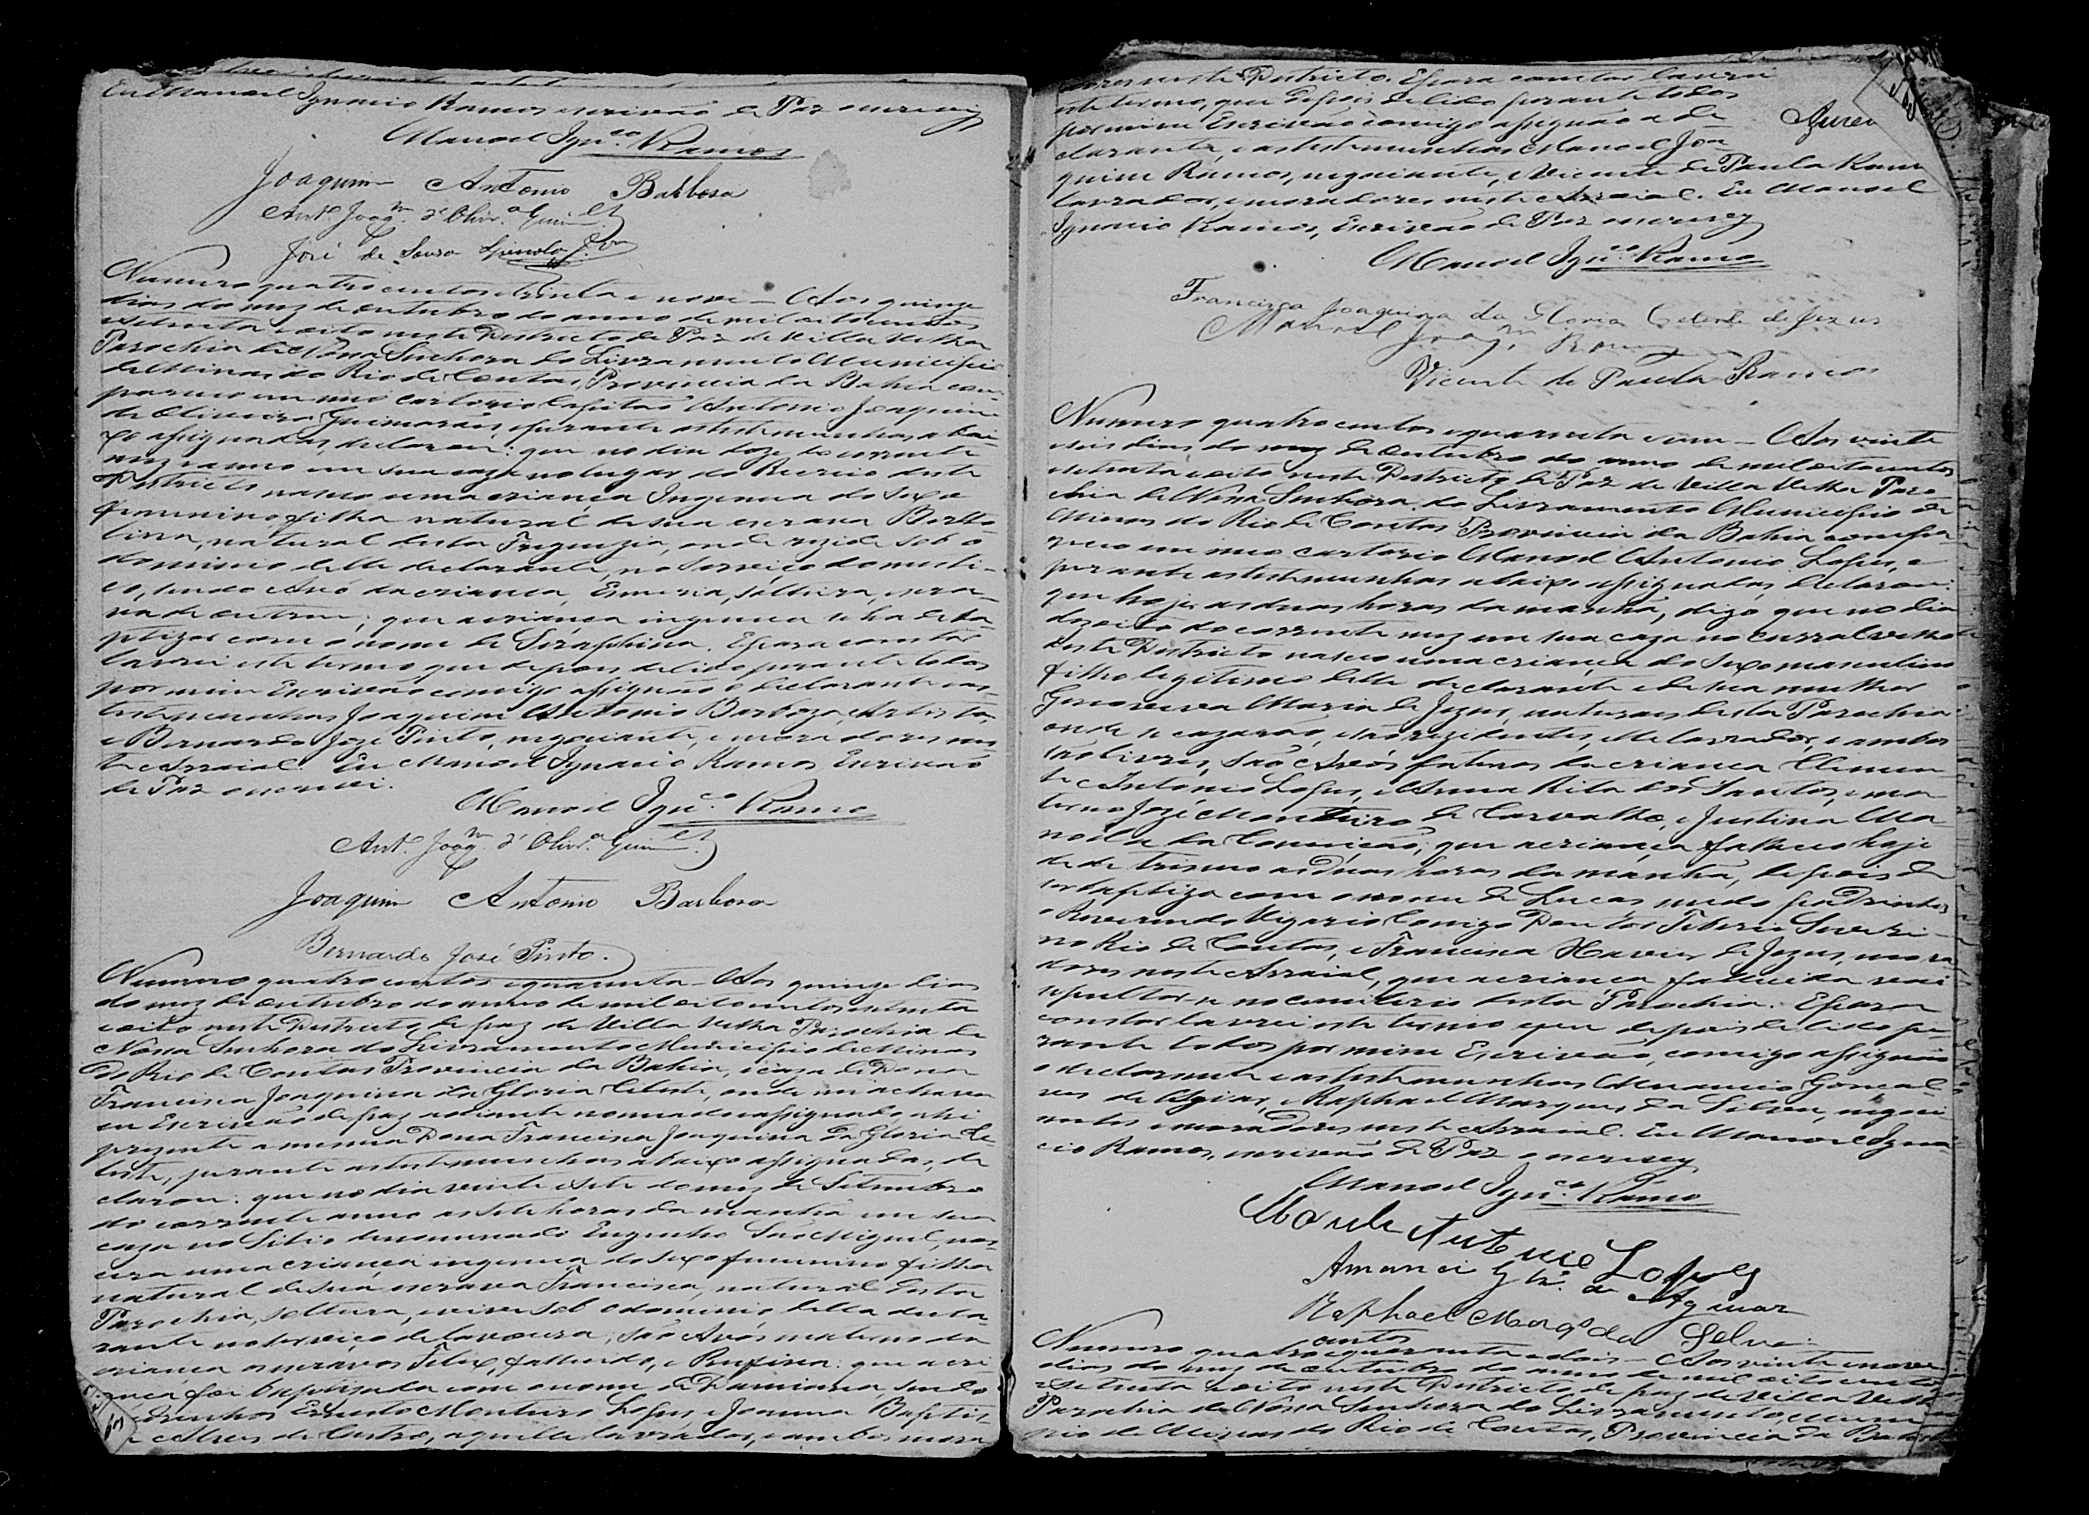 Eu Manoel Ignacio Ramos escrivão de Paz escrevi
Manoel Ign.co Ramos
Joaquim Antonio Barbosa
Ant.o Joaq.m d'Oliv.a Guim.es
José de Souza Spinola
Numero quatro centos e trinta e nove — Aos quinze
dias do mez de outubro do anno de mil oito centos
e setenta e oito neste Districto de Paz de Villa Velha
Parochia de Nossa Senhora do Livramento Municipio
de Minas do Rio de Contas, Provincia da Bahia com-
pareceo em meo cartorio Capitão Antonio Joaquim
de Oliveira Guimarães, e perante as testemunhas abai-
xo assignadas, declarou: que no dia doze do corrente
mez e anno em sua caza no lugar do Recreio deste
Districto nasceo uma criança Ingenua do sexo
femenino filha natural de sua escrava Bertho
lina, natural desta Freguezia, onde rezide sob o
dominio delle declarante, no serviço domesti-
co, sendo Avó da criança, Esmeria, solteira, escra-
va de outrem; que a criança ingenua se ha de ba-
ptizar com o nome de Seraphina. E para constar
lavrei este termo que depois de lido perante todos
por mim Escrivão comigo assignão o declarante e as
testemunhas Joaquim Antonio Barboza, Artista,
e Bernardo Jozé Pinto, negociante, e moradores nes-
te Arraial. Eu Manoel Ignacio Ramos Escrivão
de Paz o escrevi.
Manoel Ign.co Ramos
Ant.o Joaq.m d'Oliv.a Guim.es
Joaquim Antonio Barbosa
Bernardo José Pinto.
Numero quatro centos e quarenta — Aos quinze dias
do mez de outubro do anno de mil oito centos setenta
e oito neste Districto de paz de Villa Velha Parochia de
Nossa Senhora do Livramento Municipio de Minas
do Rio de Contas Provincia da Bahia, e caza de Dona
Francisca Joaquina da Gloria Celeste, onde me achava
eu Escrivão de paz adiante nomeado e assignado ahi
prezente a mesma Dona Francisca Joaquina da Gloria Ce-
leste, perante as testemunhas abaixo assignadas, de
clarou: que no dia vinte e sete do mez de Setembro
do corrente anno as sete horas da manhã em sua
caza no Sitio denominado Engenho São Miguel, nas-
cera uma criança ingenua do sexo femenino filha
natural de sua escrava Francisca, natural desta
Parochia, solteira, e vive sob o dominio della decla-
rante no serviço de lavoura; são Avós materno da
criança os escravos Felix, fallecido, e Rufina: que a cri
ança foi baptizada com o nome de Damiana sendo
padrinhos Ernesto Monteiro Lopes, e Joanna Baptis
Alves de Castro, aquelle lavrador, e ambos mora
dores neste Districto. E para constar lavrei
este termo, que depois de lido perante todos
por mim Escrivão comigo assignão a de
clarante, e as testemunhas Manoel Joa
quim Ramos, negociante, e Vicente de Paula Ramos
lavrador, e moradores neste Arraial. Eu Manoel
Ignacio Ramos, Escrivão de Paz escrevi
Manoel Ign.co Ramos
Francisca Joaquina da Gloria Celeste de Jezus
Manoel Joaq.m Ramos
Vicente de Paula Ramos
Numero quatro centos e quarenta e um — Aos vinte
e seis dias do mez de outubro do anno de mil oito centos
e setenta e oito neste Districto de Paz de Villa Velha Paro
chia de Nossa Senhora do Livramento Municipio de
Minas do Rio de Contas Provincia da Bahia compa-
receo em meo cartorio Manoel Antonio Lopes, e
perante as testemunhas abaixo assignadas, declarou:
que hoje as duas horas da manhã, digo que no dia
dezoito do corrente mez em sua caza no curral velho
deste Districto nasceo uma criança do sexo masculino
filho legitimo delle declarante e de sua mulher
Generoza Maria de Jezus, naturaes desta Parochia
onde se cazarão, e são rezidentes, elle lavrador, e ambos
são livres, são Avós paternos da criança Clemen
te Antonio Lopes, e Anna Rita dos Santos, e ma
terno Jozé Monteiro de Carvalho, e Justina Ma-
noela da Conceição; que a criança falleceo hoje
de tetismo as duas horas da manhã, depois de
ser baptiza com o nome de Lucas sendo padrinhos
o Reverendo Vigario Conego Doutor Tiberio Severi-
no Rio de Contas, e Francisca Xavier de Jezus, mora
dores neste Arraial, que a criança fallecida vai
sepultar-se no cemiterio desta Parochia. E para
constar lavrei este termo que depois de lido pe-
rante todos por mim Escrivão, comigo assignão
o declarante e as testemunhas Amancio Goncal-
ves de Aguiar, e Raphael Marques da Silva, negoci
antes e moradores neste Arraial. Eu Manoel Igna
cio Ramos, escrivão de Paz o escrevi
Manoel Ign.co Ramos
Manoel Antonio Lopes
Amancio Glz. de Aguiar
Raphael Marq.s da Silva
Numero quatro centos quarenta e dois — Aos vinte e nove
dias do mez de outubro do anno de mil oito centos
e setenta e oito neste Districto de paz de Villa Velha
Parochia de Nossa Senhora do Livramento, Munici
pio de Minas do Rio de Contas, Provincia da Bahia